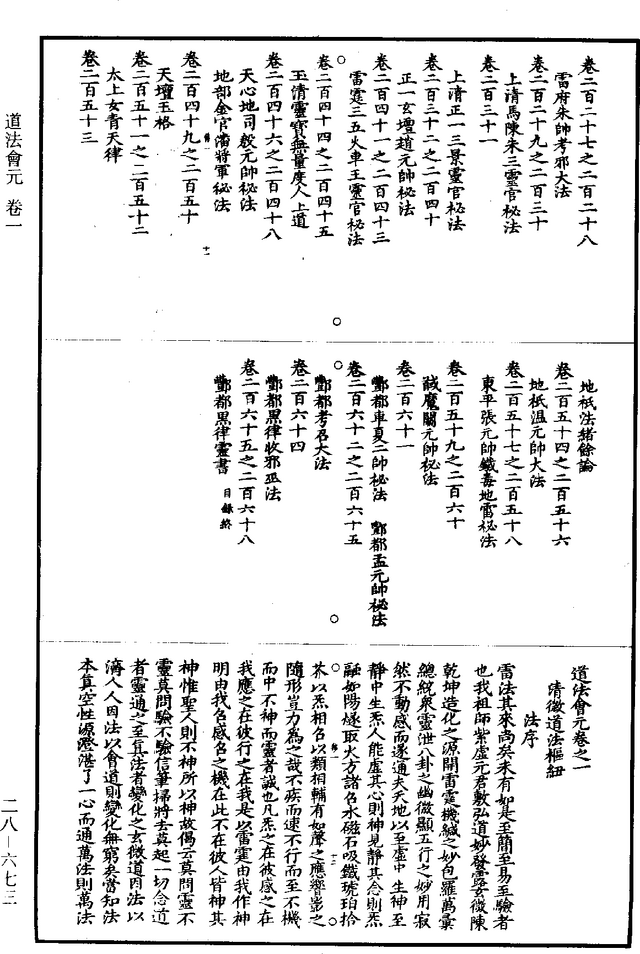 道法會元 卷一
二八—六七三
卷二百二十七之二百二十八
雷府朱帥考邪大法
卷二百二十九之二百三十
上清馬陳朱三靈官秘法
卷二百三十一
上清正一三景靈官秘法
卷二百三十二之二百四十
正一玄壇趙元帥秘法
卷二百四十一之二百四十三
雷霆三五火車王靈官秘法
卷二百四十四之二百四十五
玉清靈寶無量度人上道
卷二百四十六之二百四十八
天心地司殷元帥秘法
地部金官潘將軍秘法
卷二百四十九之二百五十
天壇玉格
卷二百五十一之二百五十二
太上女青天律
卷二百五十三
地祇法緒餘論
卷二百五十四之二百五十六
地祇溫元帥大法
卷二百五十七之二百五十八
東平張元帥鐵毒地雷秘法
卷二百五十九之二百六十
馘魔關元帥秘法
卷二百六十一
酆都車夏二帥秘法 酆都孟元帥秘法
卷二百六十二之二百六十五
酆都考召大法
卷二百六十四
酆都黑律收邪巫法
卷二百六十五之二百六十八
酆都黑律靈書 目錄終
道法會元卷之一
清微道法樞紐
法序
雷法其來尚矣未有如是至簡至易至驗者
也我祖師紫虛元君敷弘道妙發露玄微陳
乾坤造化之源開雷霆機緘之妙包羅萬彙
總統衆靈泄八卦之幽微顯五行之妙用寂
然不動感而遂通夫天地以至虛中生神至
靜中生炁人能虛其心則神見靜其念則炁
融如陽燧取火方諸召水磁石吸鐵琥珀拾
芥以炁相召以類相輔有如聲之應響影之
隨形豈力為之哉不疾而速不行而至不機
而中不神而靈者誠也凡炁之在彼感之在
我應之在彼行之在我是以雷霆由我作神
明由我召感召之機在此不在彼人皆神其
神惟聖人則不神所以神故偈云莫問靈不
靈莫問驗不驗信筆掃將去莫起一切念道
者靈通之至真法者變化之玄微道因法以
濟人人因法以會道則變化無窮矣當知法
本真空性源澄湛了一心而通萬法則萬法